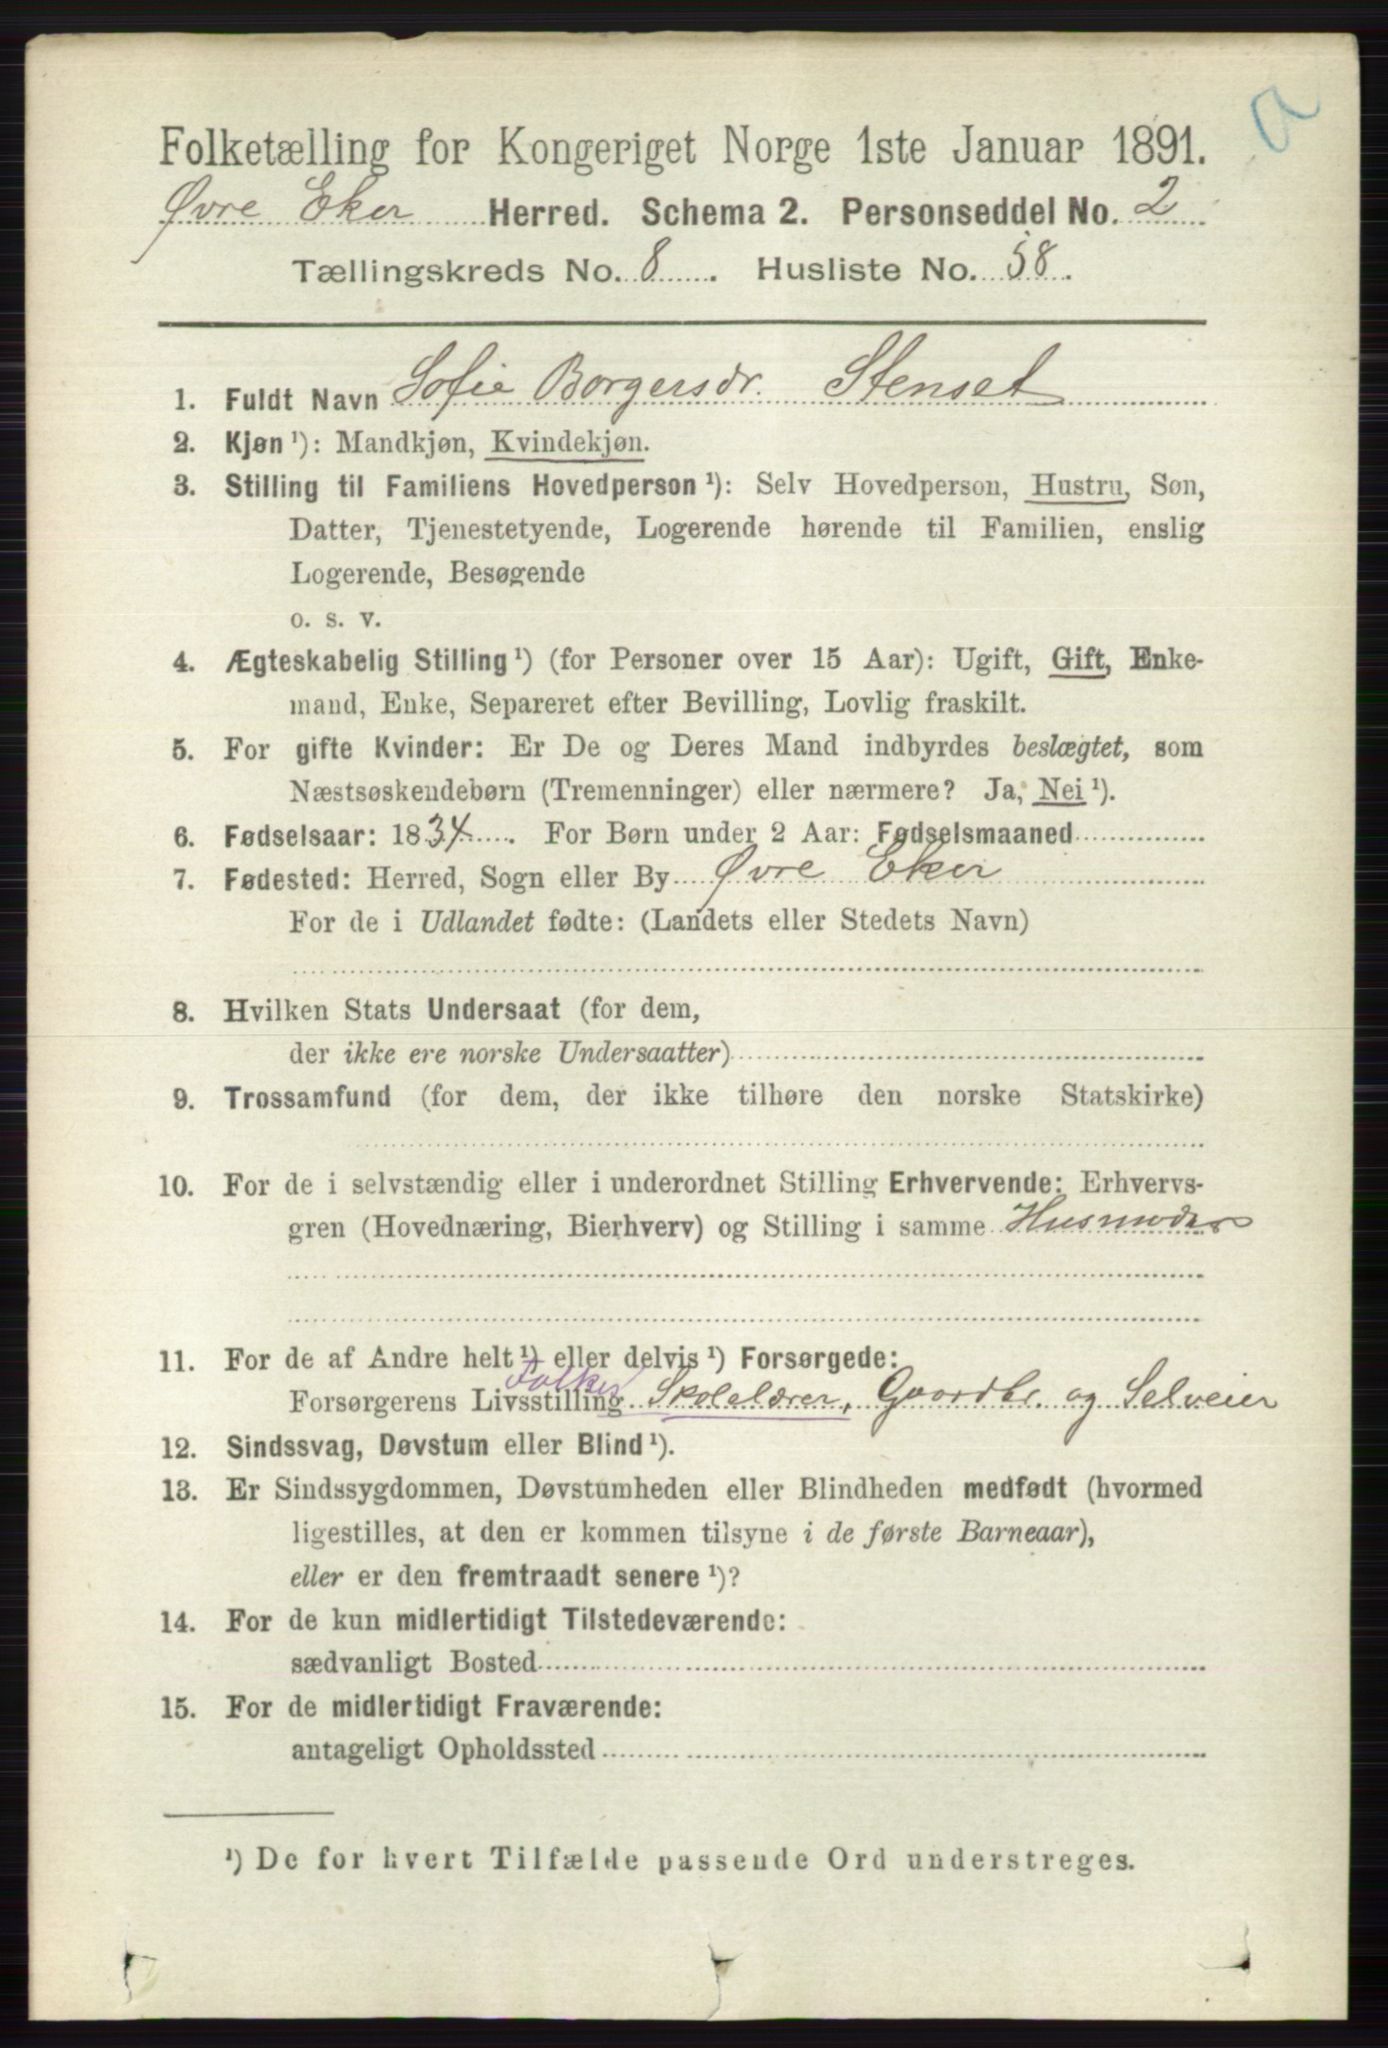 a
Folketælling for Kongeriget Norge 1ste Januar 1891.
Øvre Eker Herred. Schema 2. Personseddel No. 2
Tællingskreds No. 8. Husliste No. 58.
1. Fuldt Navn Sofie Borgersdr. Stenset
2. Kjøn ¹): Mandkjøn, Kvindekjøn.
3. Stilling til Familiens Hovedperson ¹): Selv Hovedperson, Hustru, Søn,
Datter, Tjenestetyende, Logerende hørende til Familien, enslig
Logerende, Besøgende
o. s. v.
4. Ægteskabelig Stilling ¹) (for Personer over 15 Aar): Ugift, Gift, Enke-
mand, Enke, Separeret efter Bevilling, Lovlig fraskilt.
5. For gifte Kvinder: Er De og Deres Mand indbyrdes beslægtet, som
Næstsøskendebørn (Tremenninger) eller nærmere? Ja, Nei ¹).
6. Fødselsaar: 1834. For Børn under 2 Aar: Fødselsmaaned
7. Fødested: Herred, Sogn eller By Øvre Eker
For de i Udlandet fødte: (Landets eller Stedets Navn)
8. Hvilken Stats Undersaat (for dem,
der ikke ere norske Undersaatter)
9. Trossamfund (for dem, der ikke tilhøre den norske Statskirke)
10. For de i selvstændig eller i underordnet Stilling Erhvervende: Erhvervs-
gren (Hovednæring, Bierhverv) og Stilling i samme Husmoder
11. For de af Andre helt ¹) eller delvis ¹) Forsørgede:
Folke
Forsørgerens Livsstilling Skolelærer, Gaardbr. og Selveier
12. Sindssvag, Døvstum eller Blind ¹).
13. Er Sindssygdommen, Døvstumheden eller Blindheden medfødt (hvormed
ligestilles, at den er kommen tilsyne i de første Barneaar),
eller er den fremtraadt senere ¹)?
14. For de kun midlertidigt Tilstedeværende:
sædvanligt Bosted
15. For de midlertidigt Fraværende:
antageligt Opholdssted
¹) De for hvert Tilfælde passende Ord understreges.